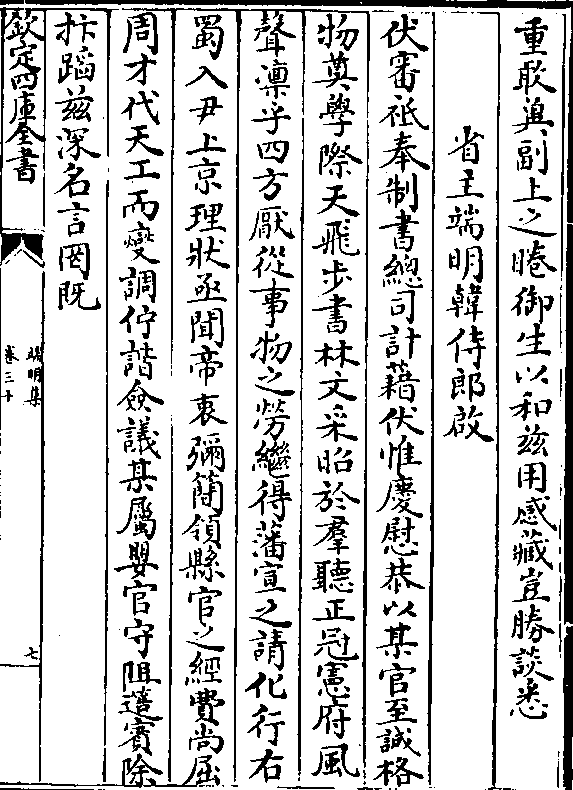 重耿奠副上之睠御生以和兹用感藏豈勝談悉
省主端明韓侍郎啟
伏審祗奉制書總司計藉伏惟慶慰恭以某官至誠格
物奠學際天飛步書林文采昭於羣聽正冠憲府風
聲凛乎四方厭從事物之勞繼得藩宣之請化行右
蜀入尹上京理狀亟聞帝衷彌簡領縣官之經費尚屈
周才代天工而燮調佇諧僉議某屬嬰官守阻造賓除
抃蹈兹深名言罔既
欽定四庫全書
端明集
卷三十
七